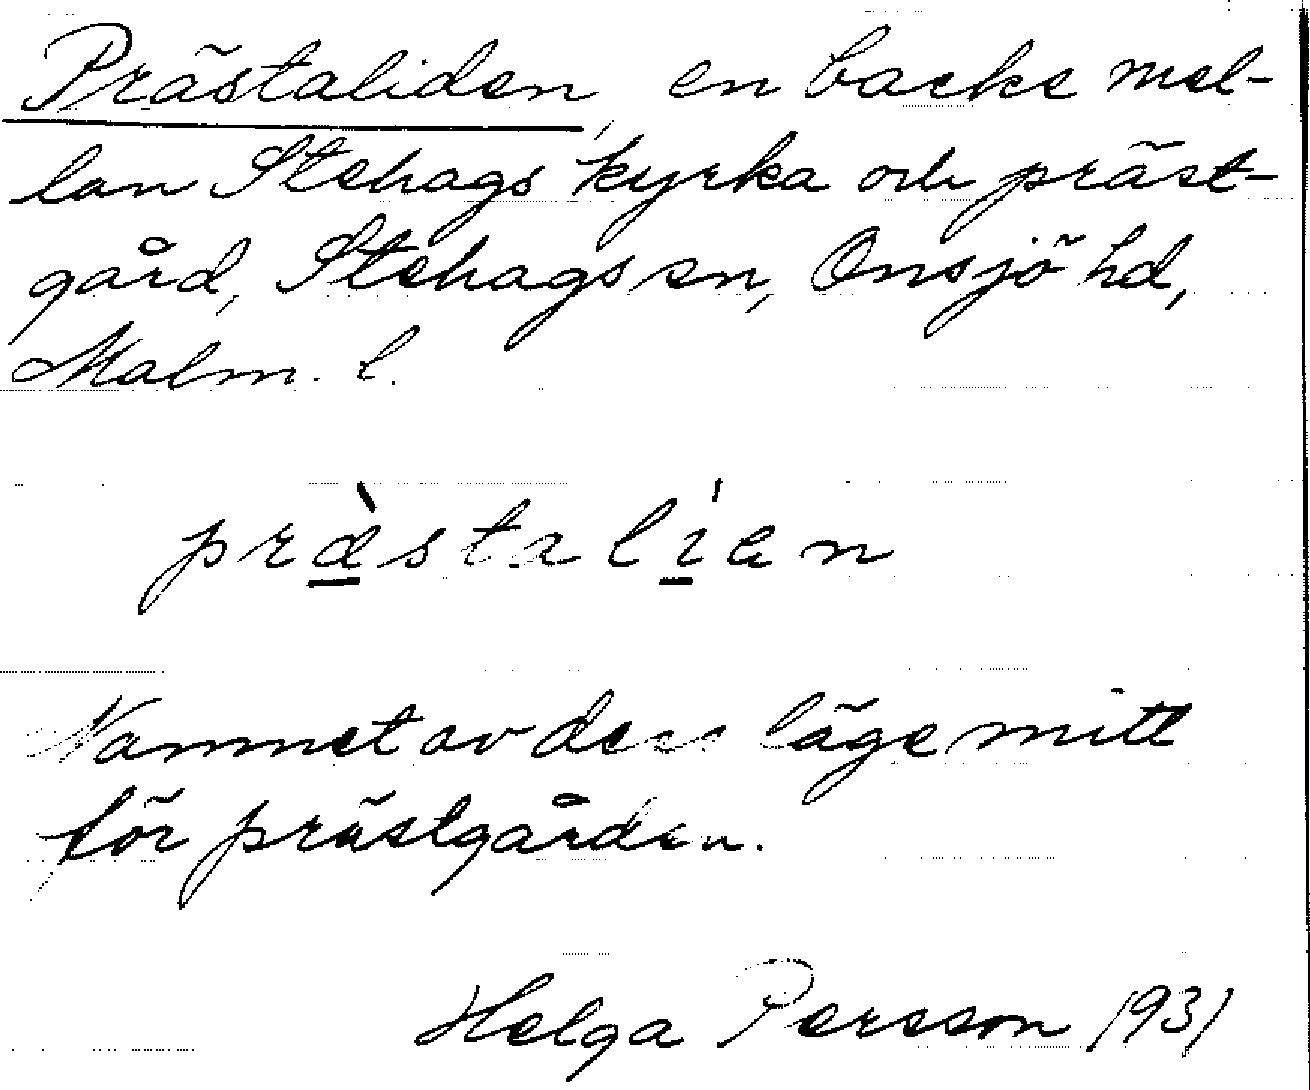 Prästaliden, en backe mel-
lan Stehags kyrka och präst-
gård, Stehags sn, Onsjö hd,
Malm. l.
præ̀stalíen
Namnet av dess läge mitt
för prästgården.
Helga Persson 1931